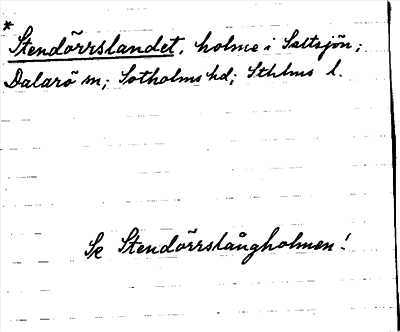 * Stendörrslandet, holme i Saltsjön;
Dalarö m; Sotholms hd; Sthlms l.
Se Stendörrslångholmen!